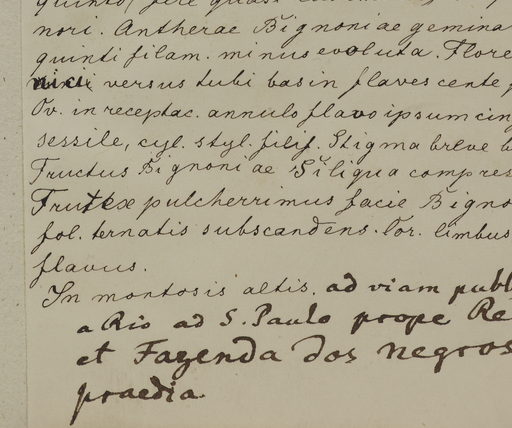 nori. Antherae Bignoniae gemina
quinti filam. minus evoluta. Flore
versus tubi basin flavescente
Ov. in receptac. annulo flavo ipsum cin
sessile, cyl. styl. filif. Stigma breve b
Fructus Bignoniae Siliqua compres
Frutex pulcherrimus facie Bigno
fol. ternatis subscandens. Cor. limbus
flavus.
In montosis altis, ad viam publ
a Rio ad S. Paulo prope Re
et Fazenda dos negros
praedia.